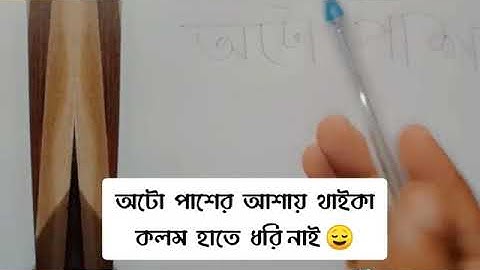 অটো পাশ
অটো পাশের আশায় থাইকা
কলম হাতে ধরি নাই 😌